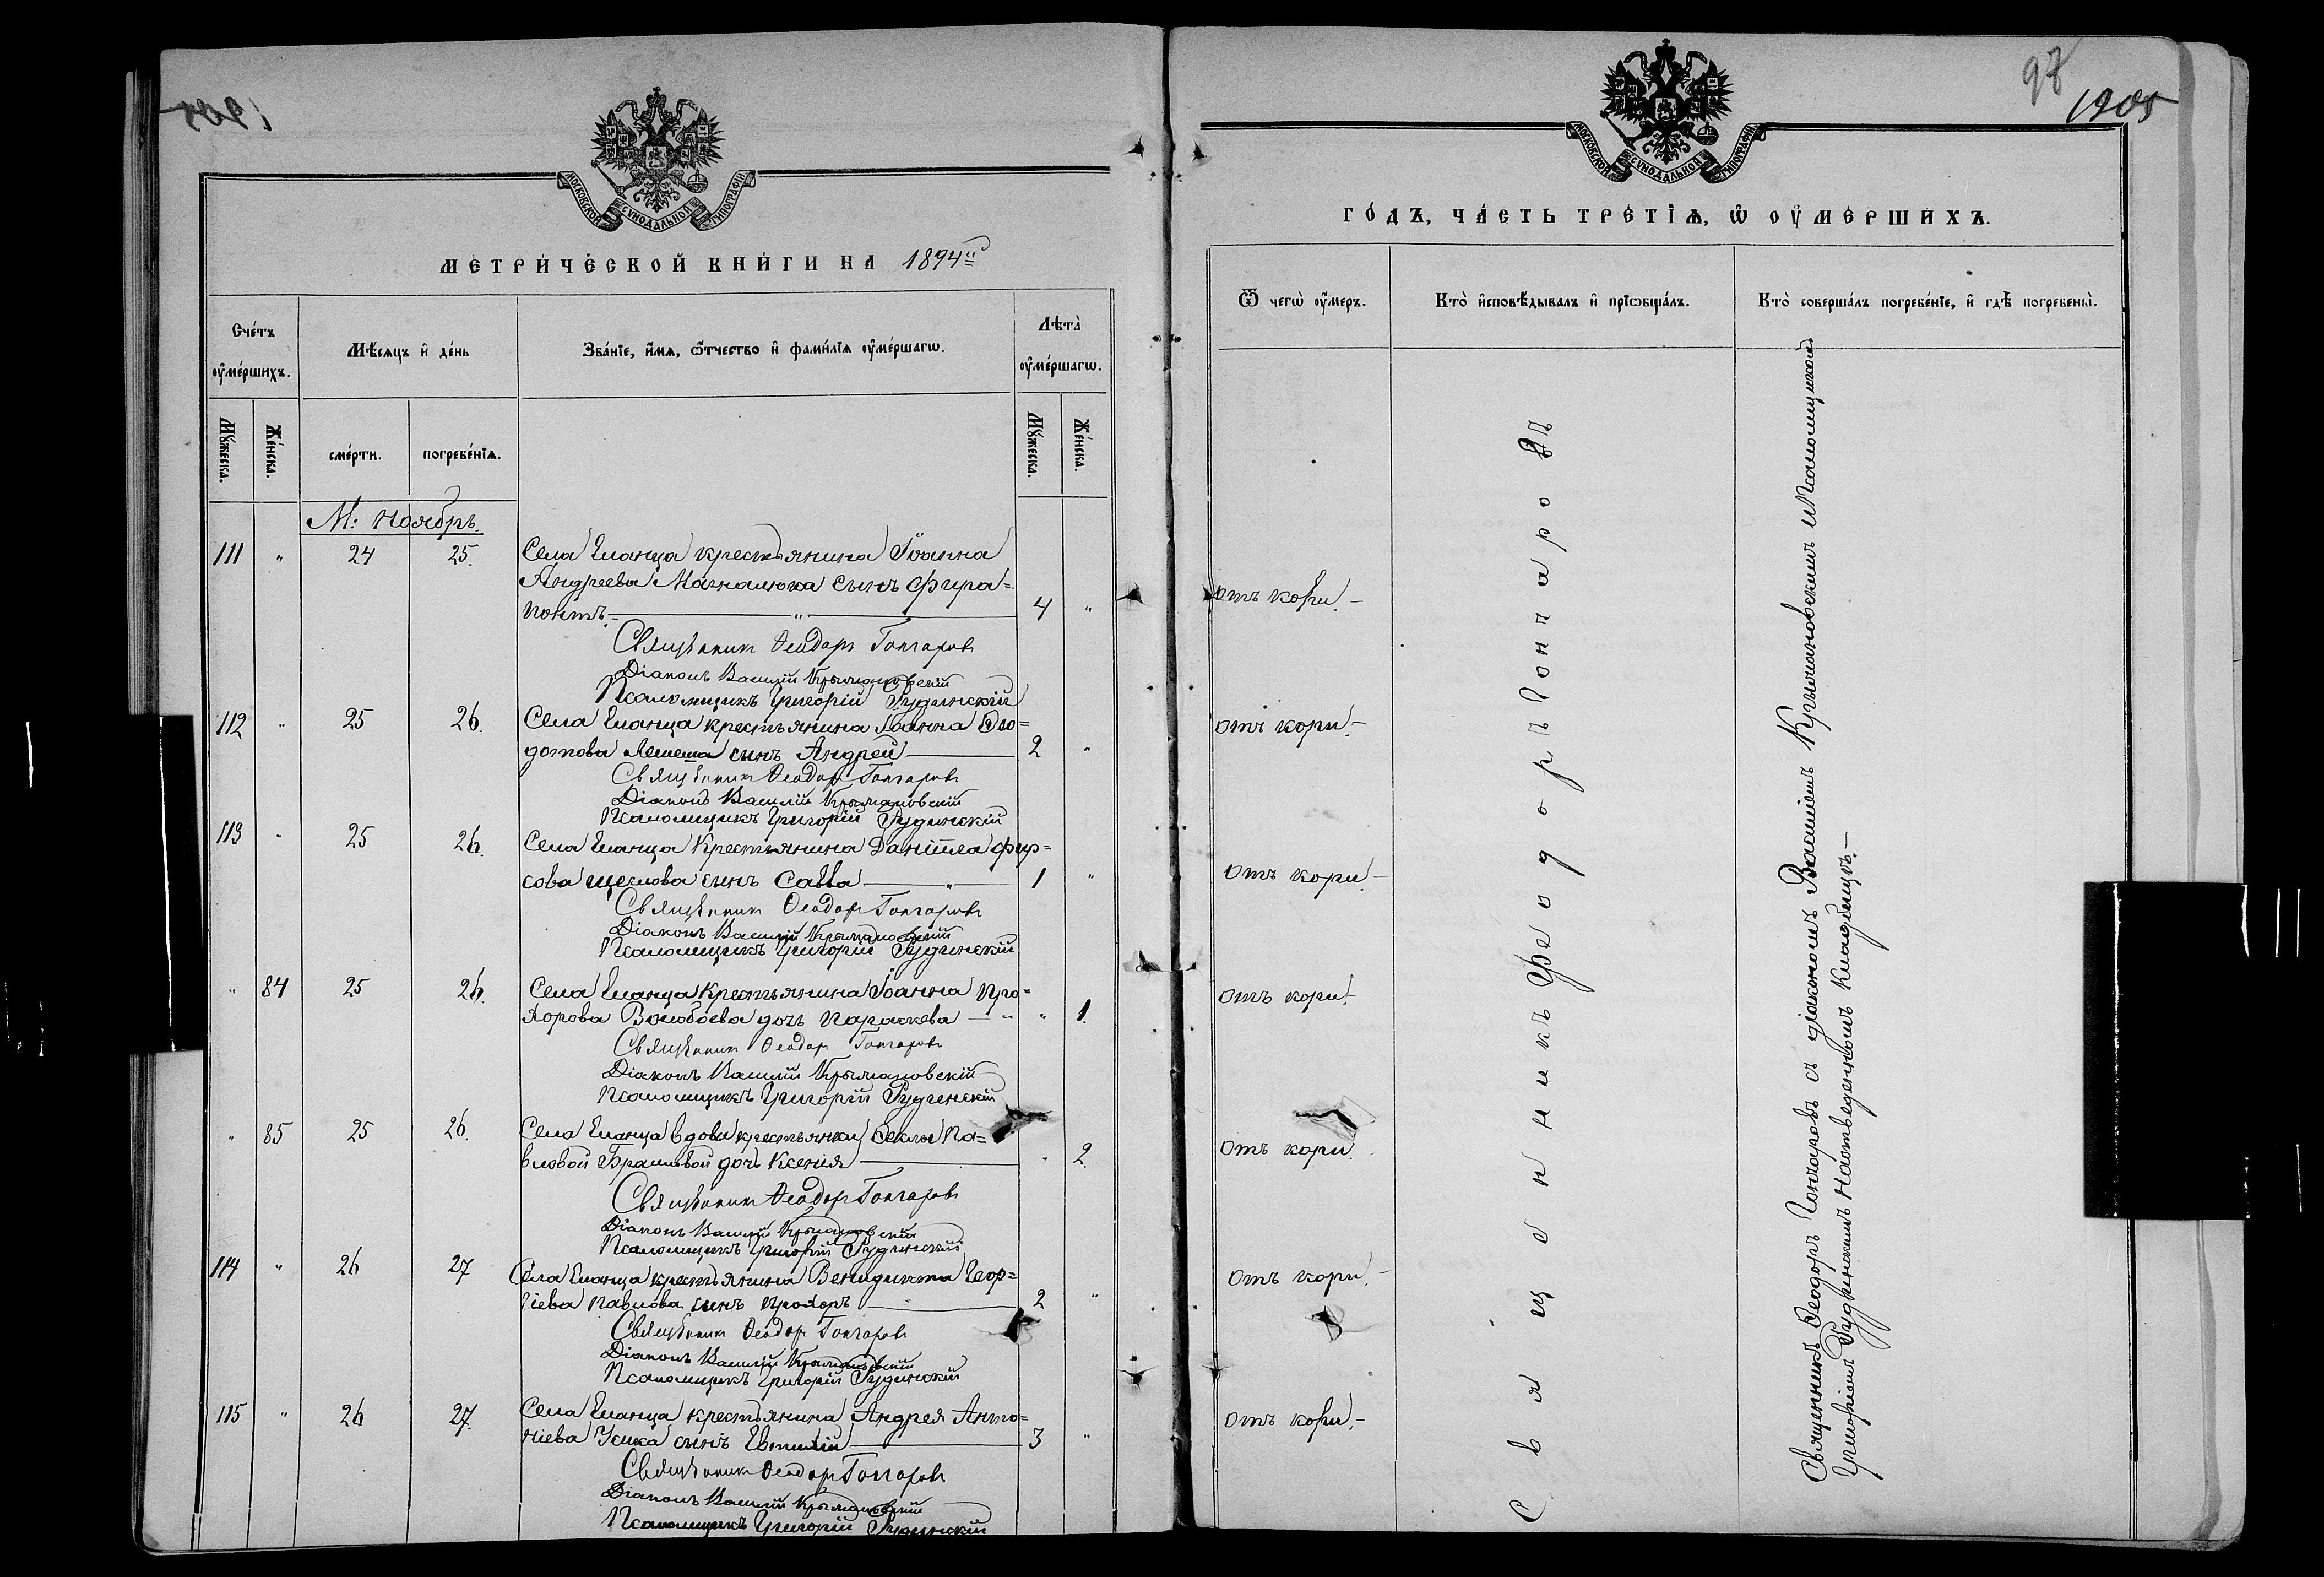 МОСКОВСКОЙ СѴНОДАЛЬНОЙ ТИПОГРАФІИ
МЕТРИ́ЧЕСКОЙ КНИ́ГИ НА 1894й
Сче́тъ оу҆ме́ршихъ.
Мѣ́сяцъ и҆ де́нь
Зва́нїе, и҆́мѧ, ѻ҆́тчество и҆ фами́лїѧ оу҆ме́ршагѡ.
Лѣта̀ оу҆ме́ршагѡ.
Мꙋ́жеска.
Же́нска.
сме́рти.
погребе́нїѧ.
Мꙋ́жеска.
Же́нска.
М: Ноябрь.
111 " 24 25. Села Еланца крестьянина Іоанна
Андреева Магналюка сынъ Фира=
понтъ. — " — 4 "
Священникъ Ѳеодоръ Гончаровъ
Діаконъ Василій Крыжановскій
Псаломщикъ Григорій Рудинскій
112 " 25 26. Села Еланца крестьянина Іоанна Ѳео=
дотова Лемеша сынъ Андрей — 2 "
Священникъ Ѳеодоръ Гончаровъ
Діаконъ Василій Крыжановскій
Псаломщикъ Григорій Рудинскій
113 " 25 26. Села Еланца Крестьянина Даніила Фир=
сова Щеглова сынъ Савва — " — 1 "
Священникъ Ѳеодоръ Гончаровъ
Діаконъ Василій Крыжановскій
Псаломщикъ Григорій Рудинскій
" 84 25 26. Села Еланца Крестьянина Іоанна Про=
хорова Волобоева дочь Параскева — " " 1.
Священникъ Ѳеодоръ Гончаровъ
Діаконъ Василій Крыжановскій
Псаломщикъ Григорій Рудинскій
" 85 25 26. Села Еланца вдовы крестьянки Ѳеклы Па=
вловой дочь Ксенія — " 2.
Священникъ Ѳеодоръ Гончаровъ
Діаконъ Василій Крыжановскій
Псаломщикъ Григорій Рудинскій
114 " 26 27 Села Еланца крестьянина Венидикта Геор=
гіева Павлова сынъ Прохоръ — 2 "
Священникъ Ѳеодоръ Гончаровъ
Діаконъ Василій Крыжановскій
Псаломщикъ Григорій Рудинскій
115 " 26 27. Села Еланца крестьянина Андрея Анто=
ніева Усика сынъ Евтихій — 3 "
Священникъ Ѳеодоръ Гончаровъ
Діаконъ Василій Крыжановскій
Псаломщикъ Григорій Рудинскій
97
1205
МОСКОВСКОЙ СѴНОДАЛЬНОЙ ТИПОГРАФІИ
ГО́ДЪ, ЧА́СТЬ ТРЕ́ТЇѦ, Ѡ҆ ОУ҆МЕ́РШИХЪ.
Ѿ чегѡ̀ оу҆́меръ.
Кто̀ и҆сповѣ́дывалъ и҆ прїѡбща́лъ.
Кто̀ соверша́лъ погребе́нїе, и҆ гдѣ̀ погребены̀.
Отъ кори. —
Отъ кори. —
Отъ кори —
Отъ кори. —
Отъ кори.
Отъ кори. —
Отъ кори. —
Священникъ Ѳеодоръ Гончаровъ
Священникъ Ѳеодоръ Гончаровъ съ діакономъ Василіемъ Крыжановскимъ и Псаломщикомъ
Григоріемъ Рудинскимъ на отведенномъ кладбищѣ. —